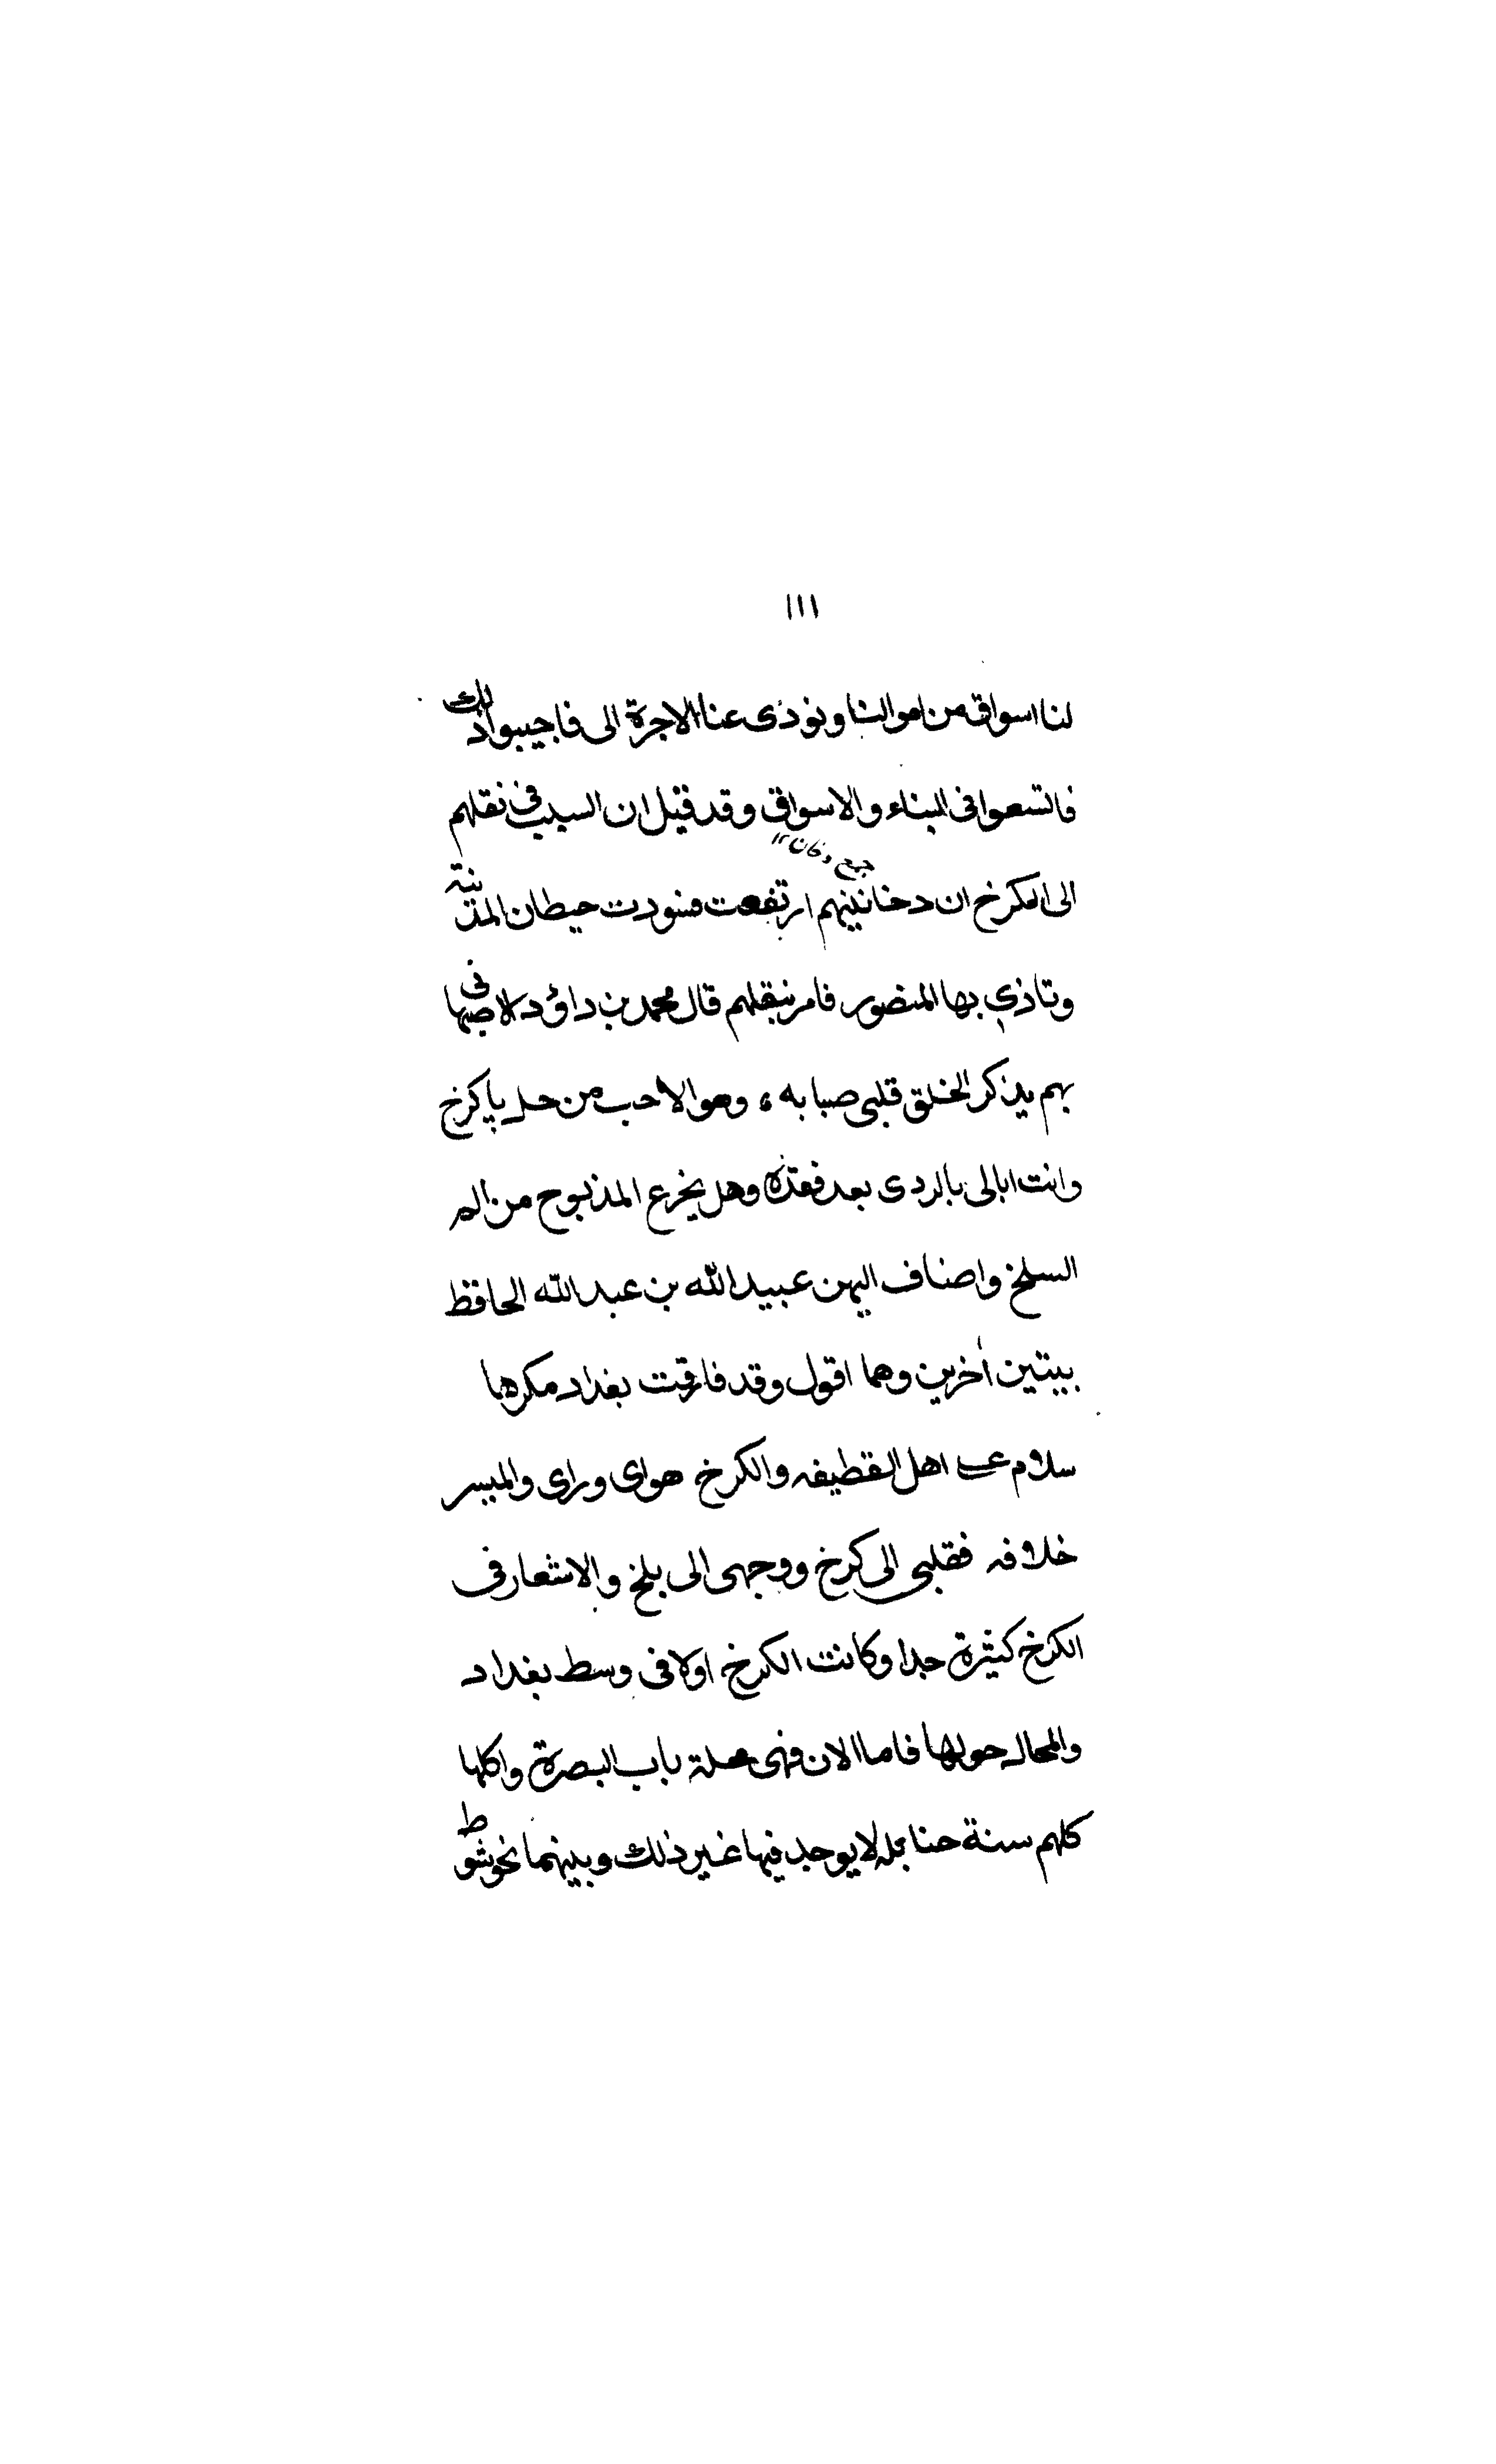 ١١١
لنا اسواق من اموالنا ونوذى عنا الاجرة الى فاجيبوا ذلك
فاتسعوا فى البناء والاسواق وقد قيل ان السبب فى نقلهم
جمع دخان ١٢
الى الكرخ ان دخانينهم ارتفعت فسودت حيطان المدينة
وتاذى بها المنصور فامر بنقلهم قال محمد بن داؤد الاصبهانى
بهم يذكر الخلق قلبى صبابه ، وهو الاحب من حل يا كرخ
وانت ابالى بالردى بعد فقده وهل يخرع المذبوح من الم
السلخ واصناف اليهن عبيد الله بن عبد الله الحافظ
بيتين أخرين وهما اقول وقد فارقت بغداد مكرها
سلام على اهل القطيفه والكرخ هواى وراى والميسر
خلافه فقلبى الى كرخ ووجهى الى بلخ والاشعار فى
الكرخ كثيرة جدا وكانت الكرخ اولا فى وسط بغداد
والمحال حولها فاما الان فهى محلة باب البصرة واكلها
كلهم سنة حنابله لا يوجد فيها غير ذلك وبينهما نحو شوط